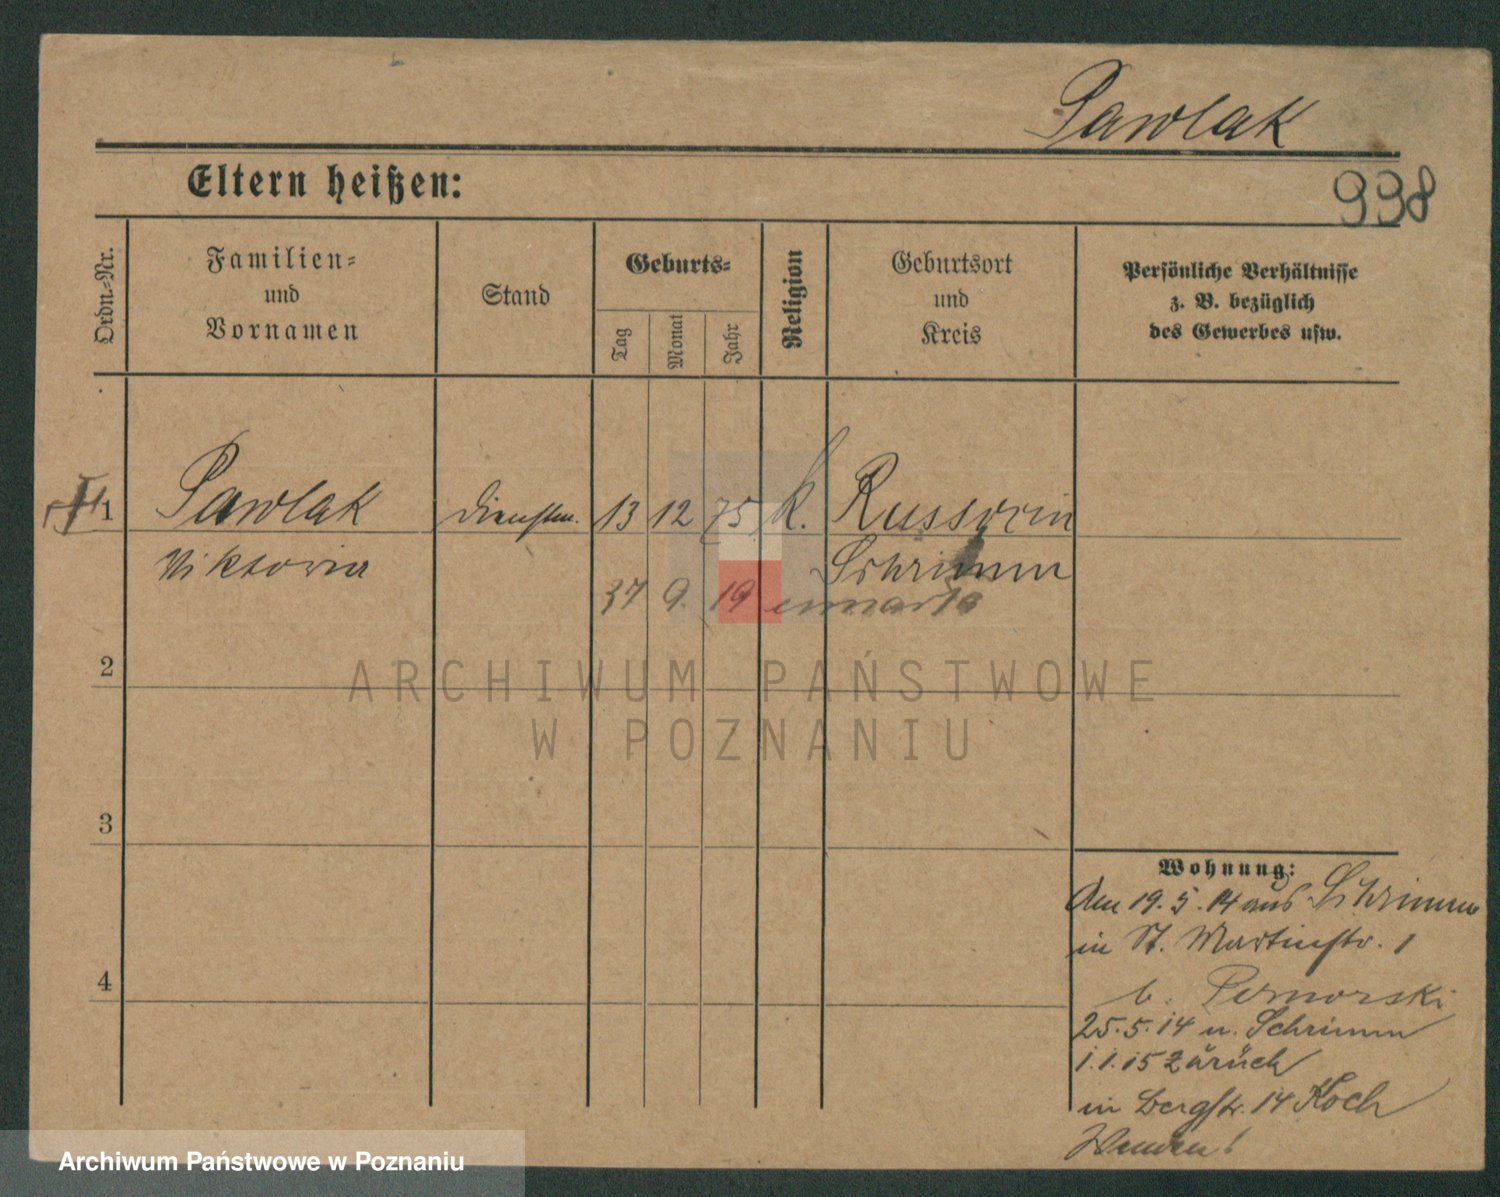 Pawlak
Eltern heißen:
998
Ordn=Nr.
Familien=
und
Vornamen
Stand
Geburts=
Tag
Monat
Jahr
Religion
Geburtsort
und
Kreis
Persönliche Verhältnisse
z. B. bezüglich
des Gewerbes usw.
1 Pawlak Dienstm. 13 12 75 k.
Viktoria Schrimm
9. 19
2
3
4
Wohnung:
Am 19.5.14 aus Schrimm
in St. Martinstr. 1
b.
25.5.14 n. Schrimm
1.1.15 zürück
in Bergstr. 14 Koch
Wenden!
ARCHIWUM PAŃSTWOWE
W POZNANIU
Archiwum Państwowe w Poznaniu